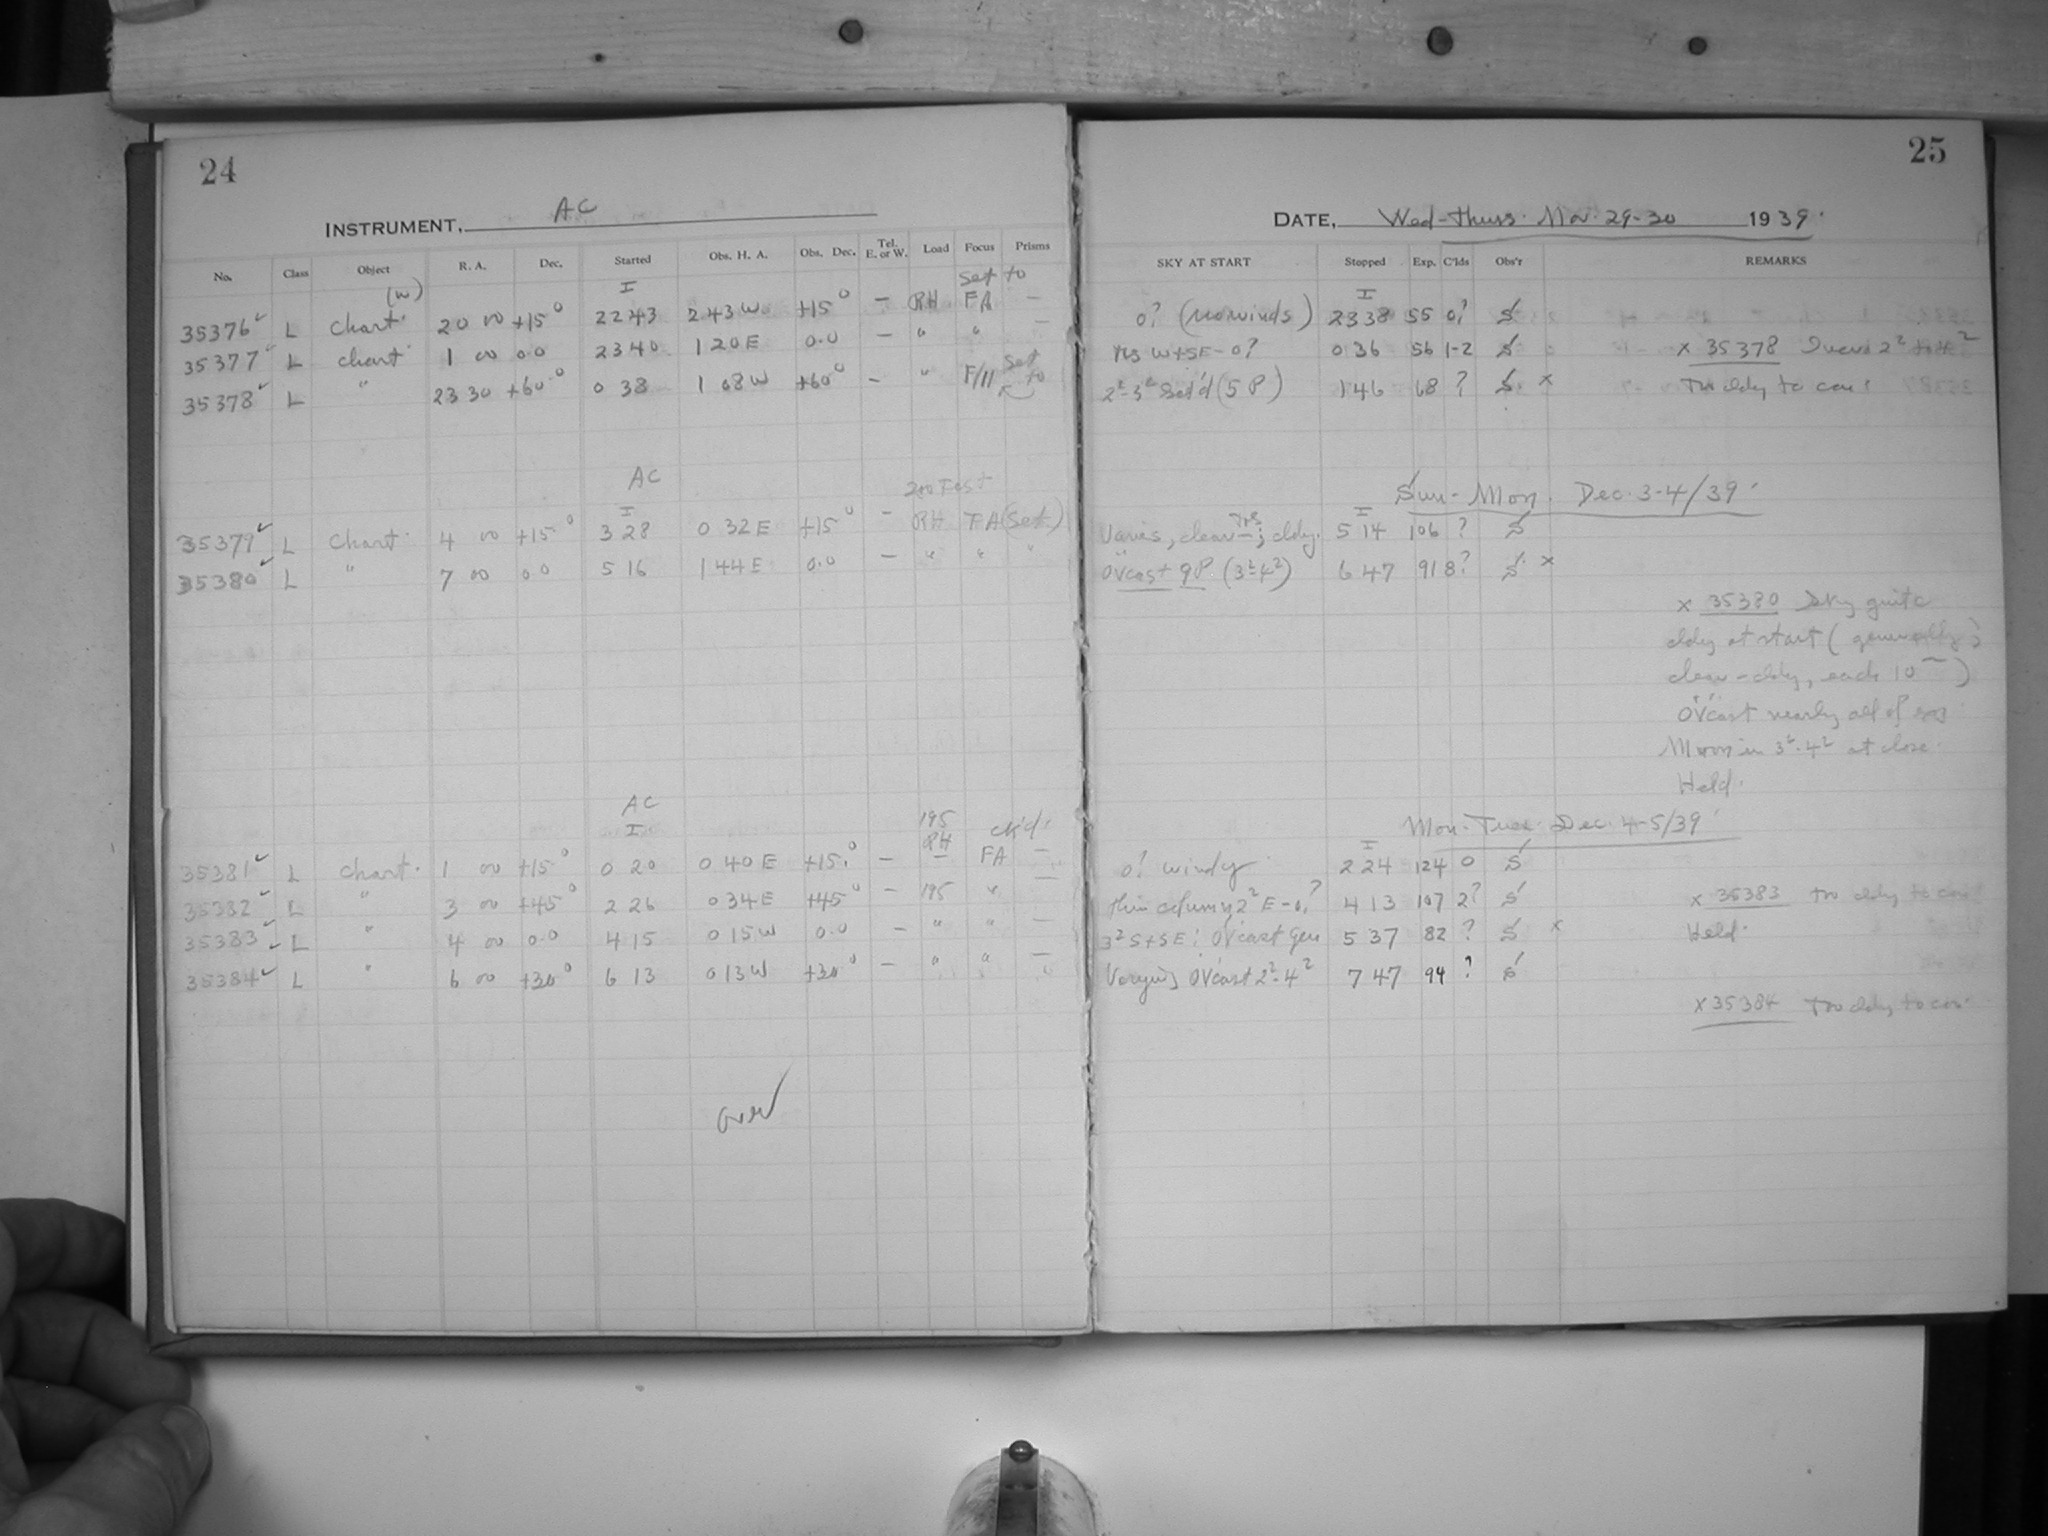 24
INSTRUMENT, AC
No. Class Object R. A. Dec. Started Obs. H. A. Obs. Dec. Tel. E. or W. Load Focus Prisms
(W) I Set to
35376 ✓ L Chart 20 00 +15° 22 43 2 43 W +15° – RH FA –
35377 ✓ L Chart 1 00 0.0 23 40 1 20 E 0.0 – " " –
35378 ✓ L " 23 30 +60° 0 38 1 08 W +60° – " F/11 Set to
AC
I 200 Fast
35379 ✓ L Chart 4 00 +15° 3 28 0 32 E +15° – RH FA (Set)
35380 ✓ L " 7 00 0 0 5 16 1 44 E 0.0 – " " "
AC
I 195 RH ck'd
35381 ✓ L Chart 1 00 +15° 0 20 0 40 E +15° – – FA –
35382 ✓ L " 3 00 +45° 2 26 0 34 E +45° – 195 " –
35383 ✓ L " 4 00 0.0 4 15 0 15 W 0.0 – " " –
35384 ✓ L " 6 00 +30° 6 13 0 13 W +30° – " " –
over
25
DATE, Wed-Thurs. Nov. 29-30 1939.
SKY AT START Stopped Exp. C'lds Obs'r REMARKS
I
0? 23 38 55 0? S
W+SE-0? 0 36 56 1-2 S x 35378 2²
2²-3² (5 P) 1 46 68 ? S x Too cldy to con
Sun-Mon. Dec. 3-4/39.
I
Varies, clear –; cldy. 5 14 106 ? S
OVcast 9P (3²-4²) 6 47 91 8? S x
x 35380 Sky quite
cldy at start (generally
clear-cldy, each 10 )
OVcast nearly all of
Moon in 3²-4² at close.
Held.
Mon-Tues. Dec. 4-5/39
I
0? windy 2 24 124 0 S
thin 2² E-0? 4 13 107 2? S x 35383 Too cldy to con
3² S+SE; OVcast Gen 5 37 82 ? S x Held.
Varying OVcast 2²-4² 7 47 94 ? S
x 35384 Too cldy to con.